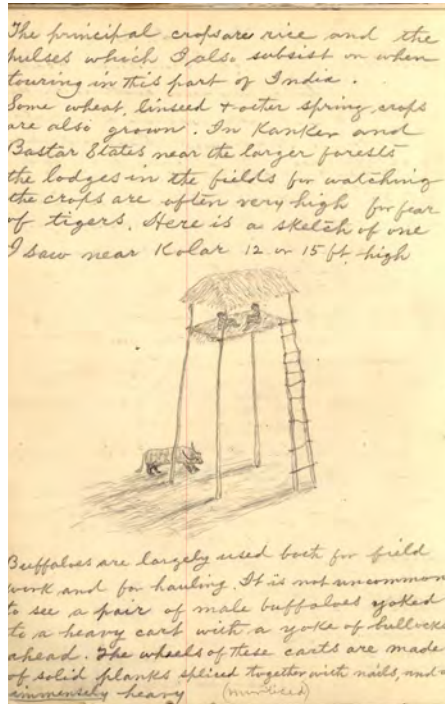 The principal crops are rice and the
pulses which I also subsist on when
touring in this part of India.
Some wheat, linseed + other spring crops
are also grown. In Kanker and
Bastar States near the larger forests
the lodges in the fields for watching
the crops are often very high for fear
of tigers. Here is a sketch of one
I saw near Kolar 12 or 15 ft. high
Buffaloes are largely used both for field
work and for hauling. It is not uncommon
to see a pair of male buffaloes yoked
to a heavy cart with a yoke of bullocks
ahead. The wheels of these carts are made
of solid planks spliced together with nails, and
immensely heavy